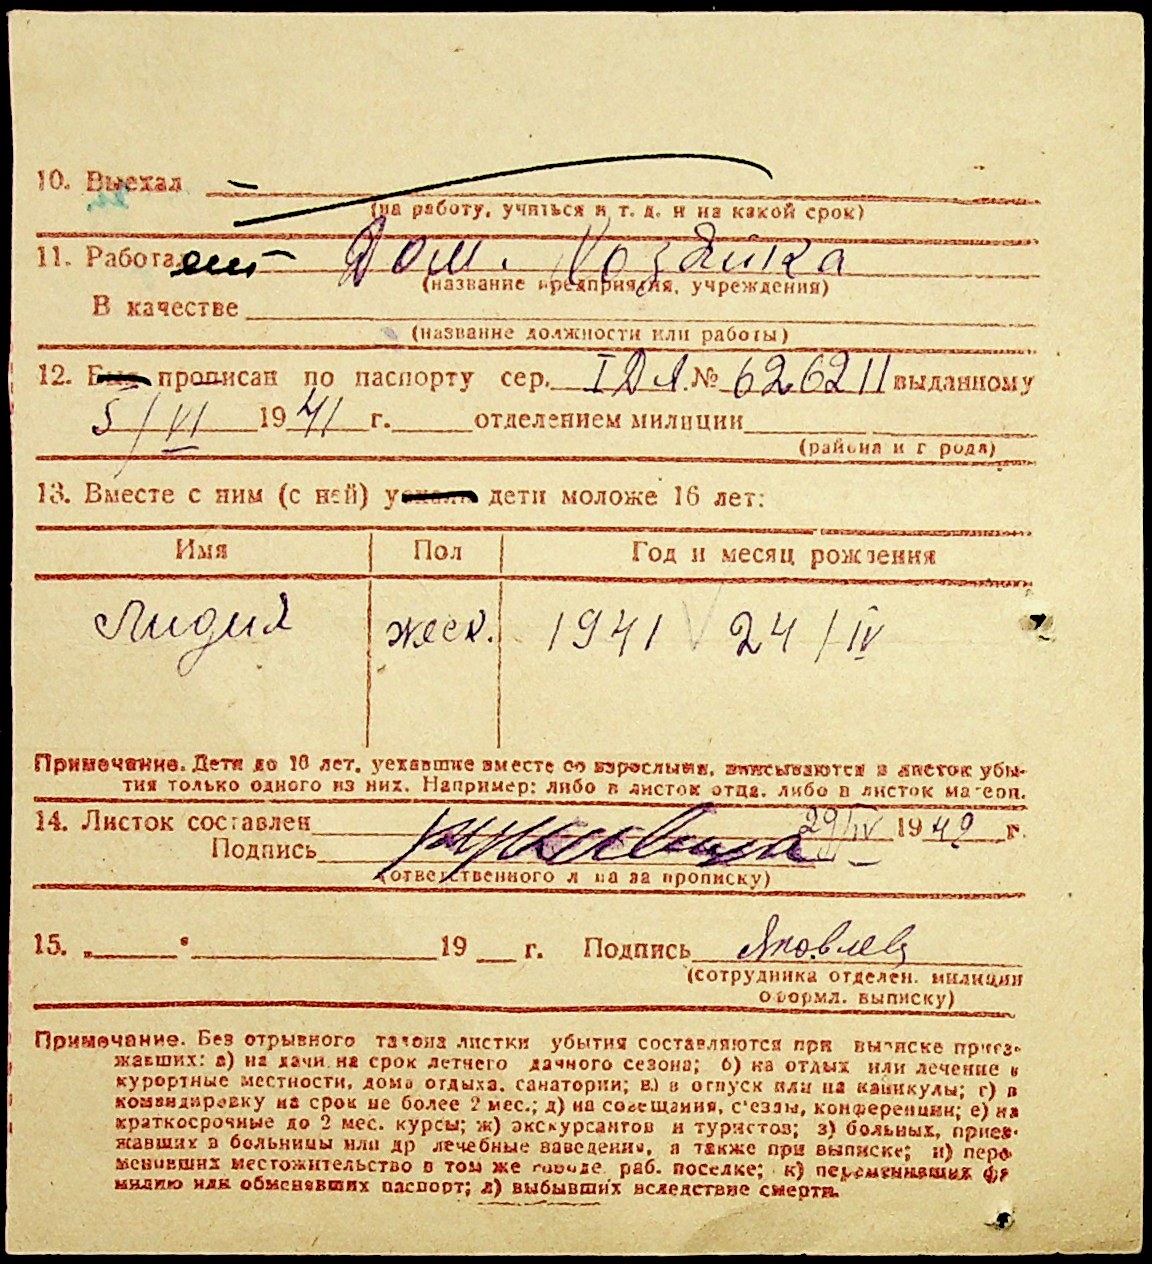 10. Выехал —
(на работу, учиться и т. д. и на какой срок)
11. Работает — Дом. Хозяйка
(название предприятия, учреждения)
В качестве
(название должности или работы)
12. Был прописан по паспорту сер. I ДЛ. № 626211 выданному
5/VI 1941 г. отделением милиции
(района и города)
13. Вместе с ним (с ней) уехали дети моложе 16 лет:
Имя Пол Год и месяц рождения
Лидия жен. 1941 V 24/IV
Примечание. Дети до 16 лет, уехавшие вместе со взрослыми, вписываются в листок убы-
тия только одного из них. Например: либо в листок отца, либо в листок матери.
14. Листок составлен 29/IV 1942 г.
Подпись
(ответственного лица за прописку)
15. „ " 19 г. Подпись Яковлев
(сотрудника отделен. милиции
оформл. выписку)
Примечание. Без отрывного талона листки убытия составляются при выписке приез-
жавших: а) на дачи на срок летнего дачного сезона; б) на отдых или лечение в
курортные местности, дома отдыха, санатории; в) в отпуск или на каникулы; г) в
командировку на срок не более 2 мес.; д) на совещания, съезды, конференции; е) на
краткосрочные до 2 мес. курсы; ж) экскурсантов и туристов; з) больных, приез-
жавших в больницы или др лечебные заведения, а также при выписке; и) пере
менивших местожительство в том же городе, раб. поселке; к) переменивших фа
милию или обменявших паспорт; л) выбывших вследствие смерти.